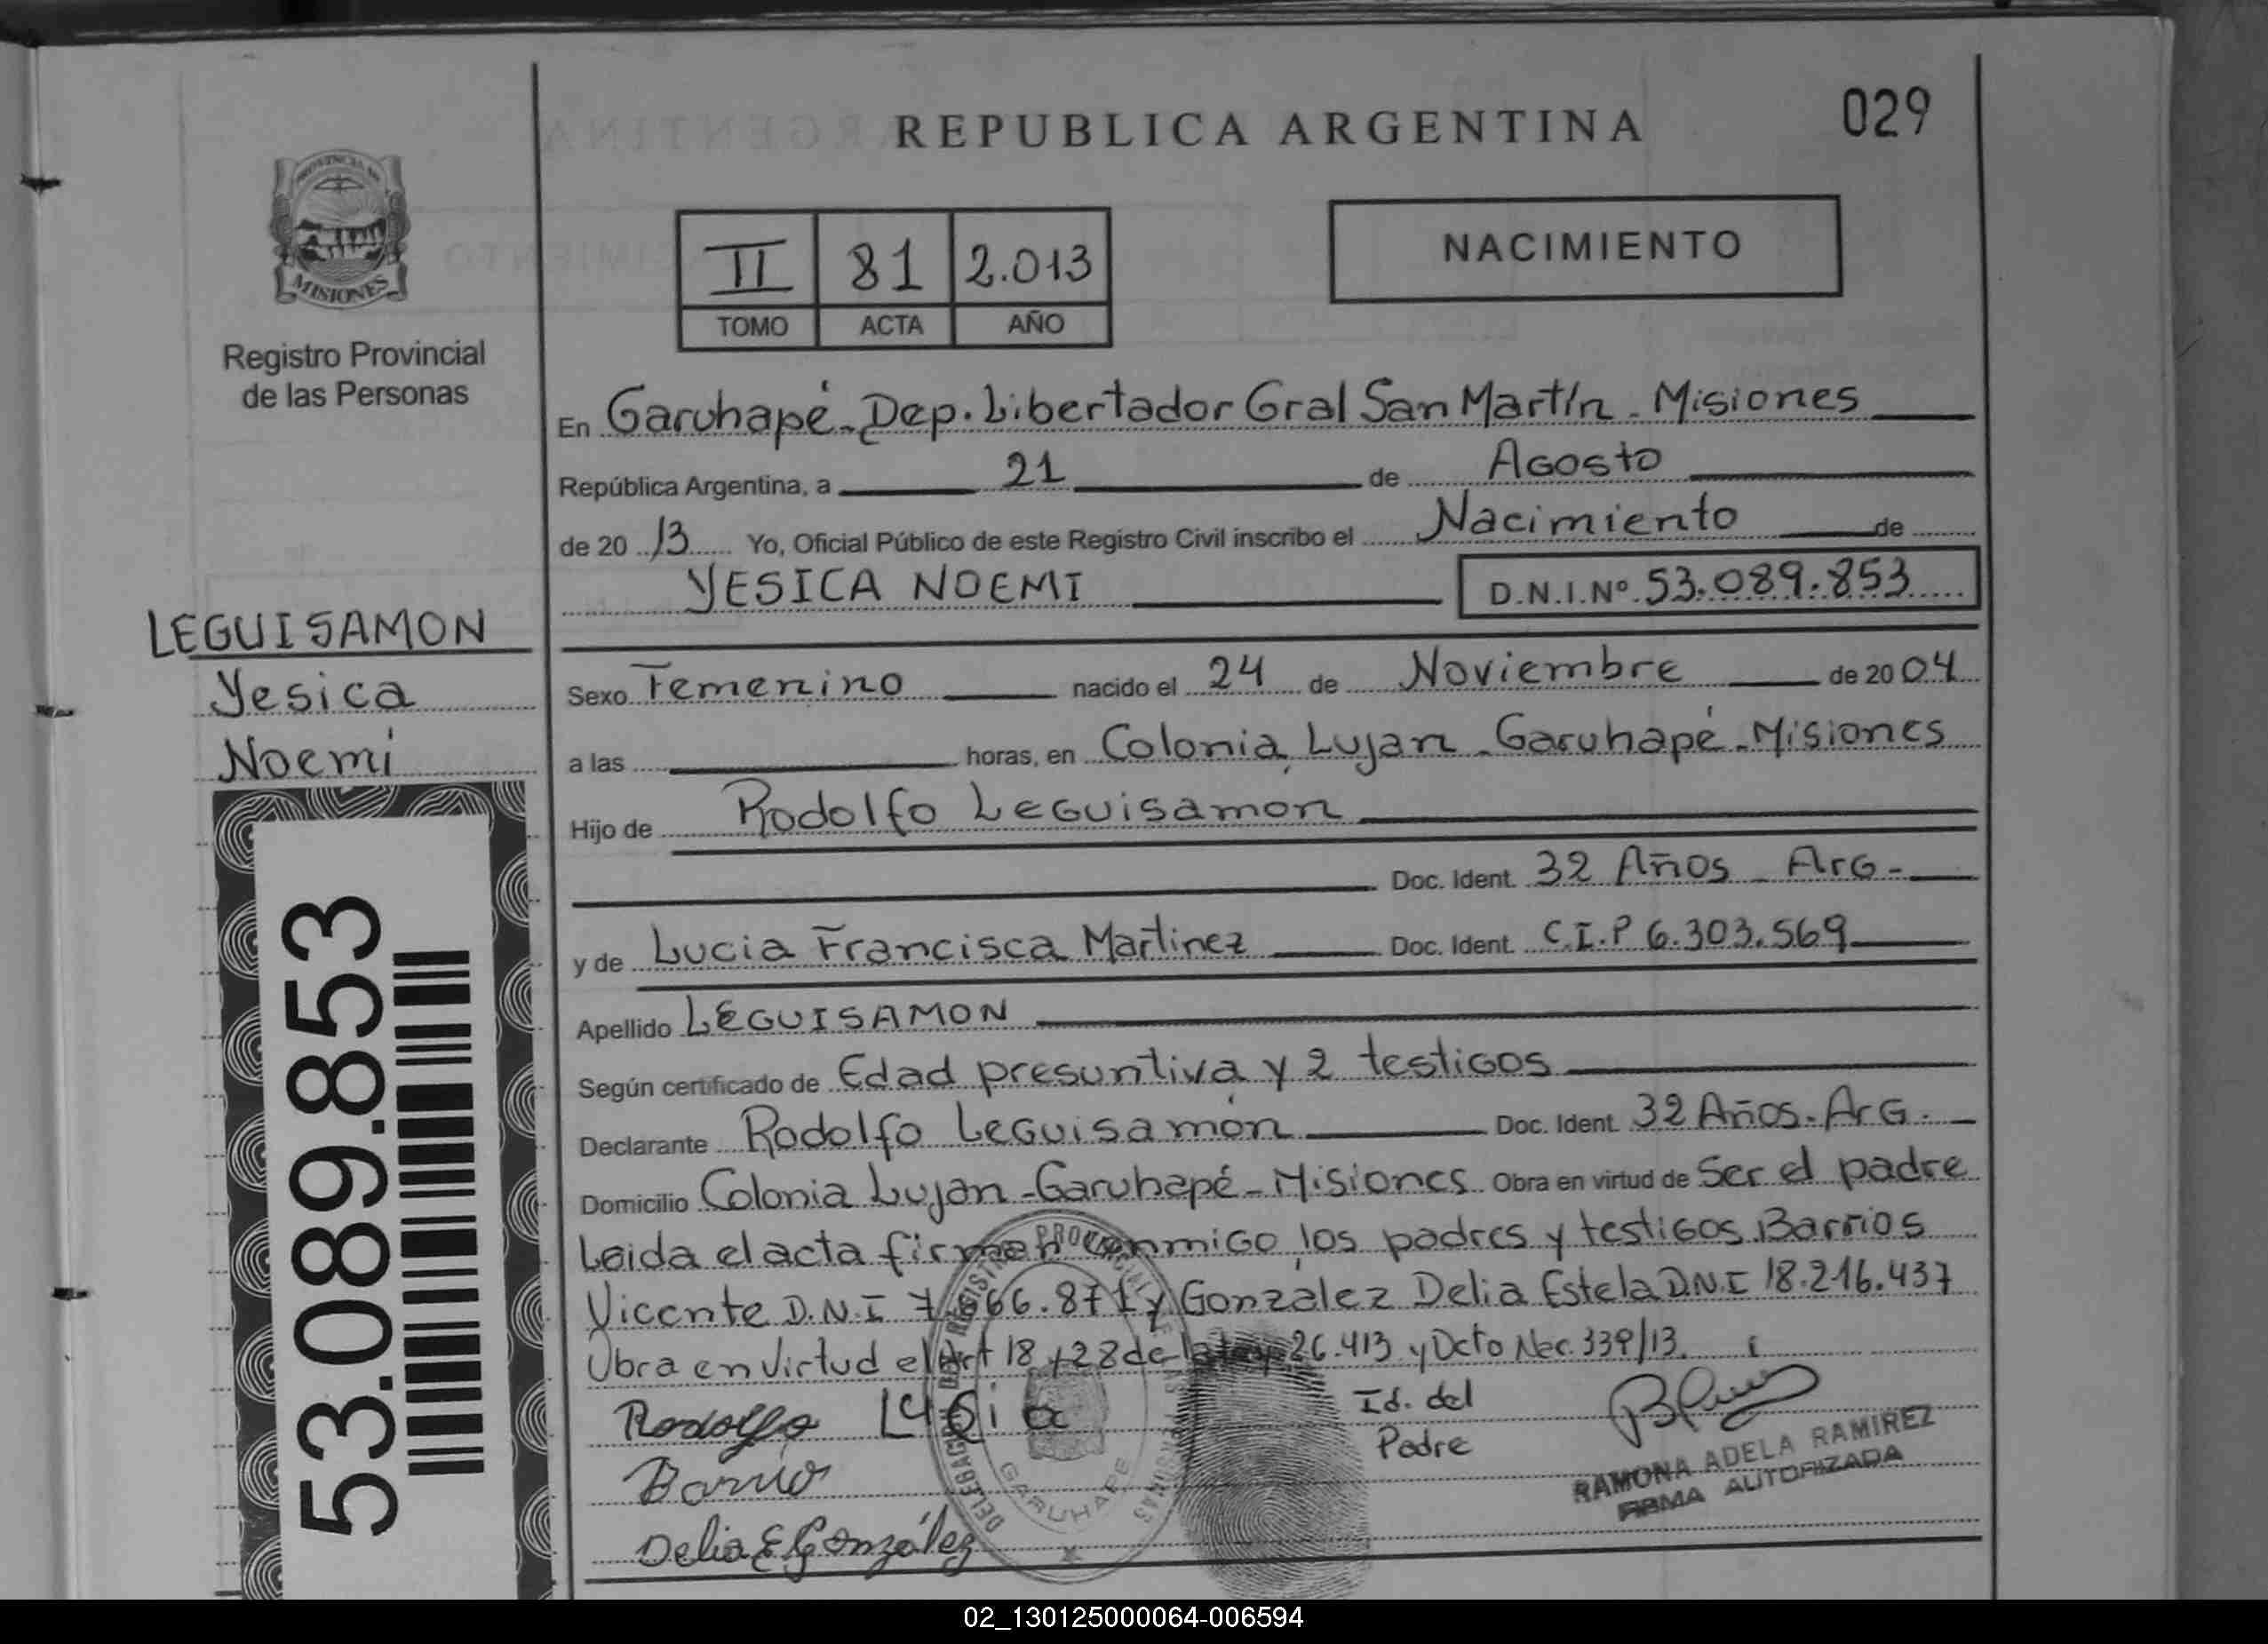 029
REPUBLICA ARGENTINA
PROVINCIA DE
MISIONES
Registro Provincial
de las Personas
NACIMIENTO
II 81 2.013
TOMO ACTA AÑO
En Garuhapé - Dep. Libertador Gral San Martín - Misiones
República Argentina, a 21 de Agosto
de 20 13 Yo, Oficial Público de este Registro Civil inscribo el Nacimiento de
YESICA NOEMI D.N.I.Nº 53.089.853
LEGUISAMON
Yesica
Noemi
53.089.853
Sexo Femenino nacido el 24 de Noviembre de 20 04
a las horas, en Colonia Lujan - Garuhapé - Misiones
Hijo de Rodolfo Leguisamon
Doc. Ident. 32 Años - Arg -
y de Lucia Francisca Martinez Doc. Ident. C.I.P 6.303.569
Apellido LEGUISAMON
Según certificado de Edad presuntiva y 2 testigos
Declarante Rodolfo Leguisamón Doc. Ident. 32 Años - Arg.
Domicilio Colonia Lujan - Garuhapé - Misiones Obra en virtud de Ser el padre
Leida el acta firman conmigo los padres y testigos Barrios
Vicente D.N.I 7.666.871 y González Delia Estela D.N.I 18.216.437
Obra en virtud el Art 18 y 28 de la Ley 26.413 y Dcto Nec. 339/13.
Rodolfo Lucia
Id. del
Padre
Barrio
Delia E González
DELEGACION REGISTRO PROVINCIAL DE LAS PERSONAS
GARUHAPE
RAMONA ADELA RAMIREZ
FIRMA AUTORIZADA
02_130125000064-006594